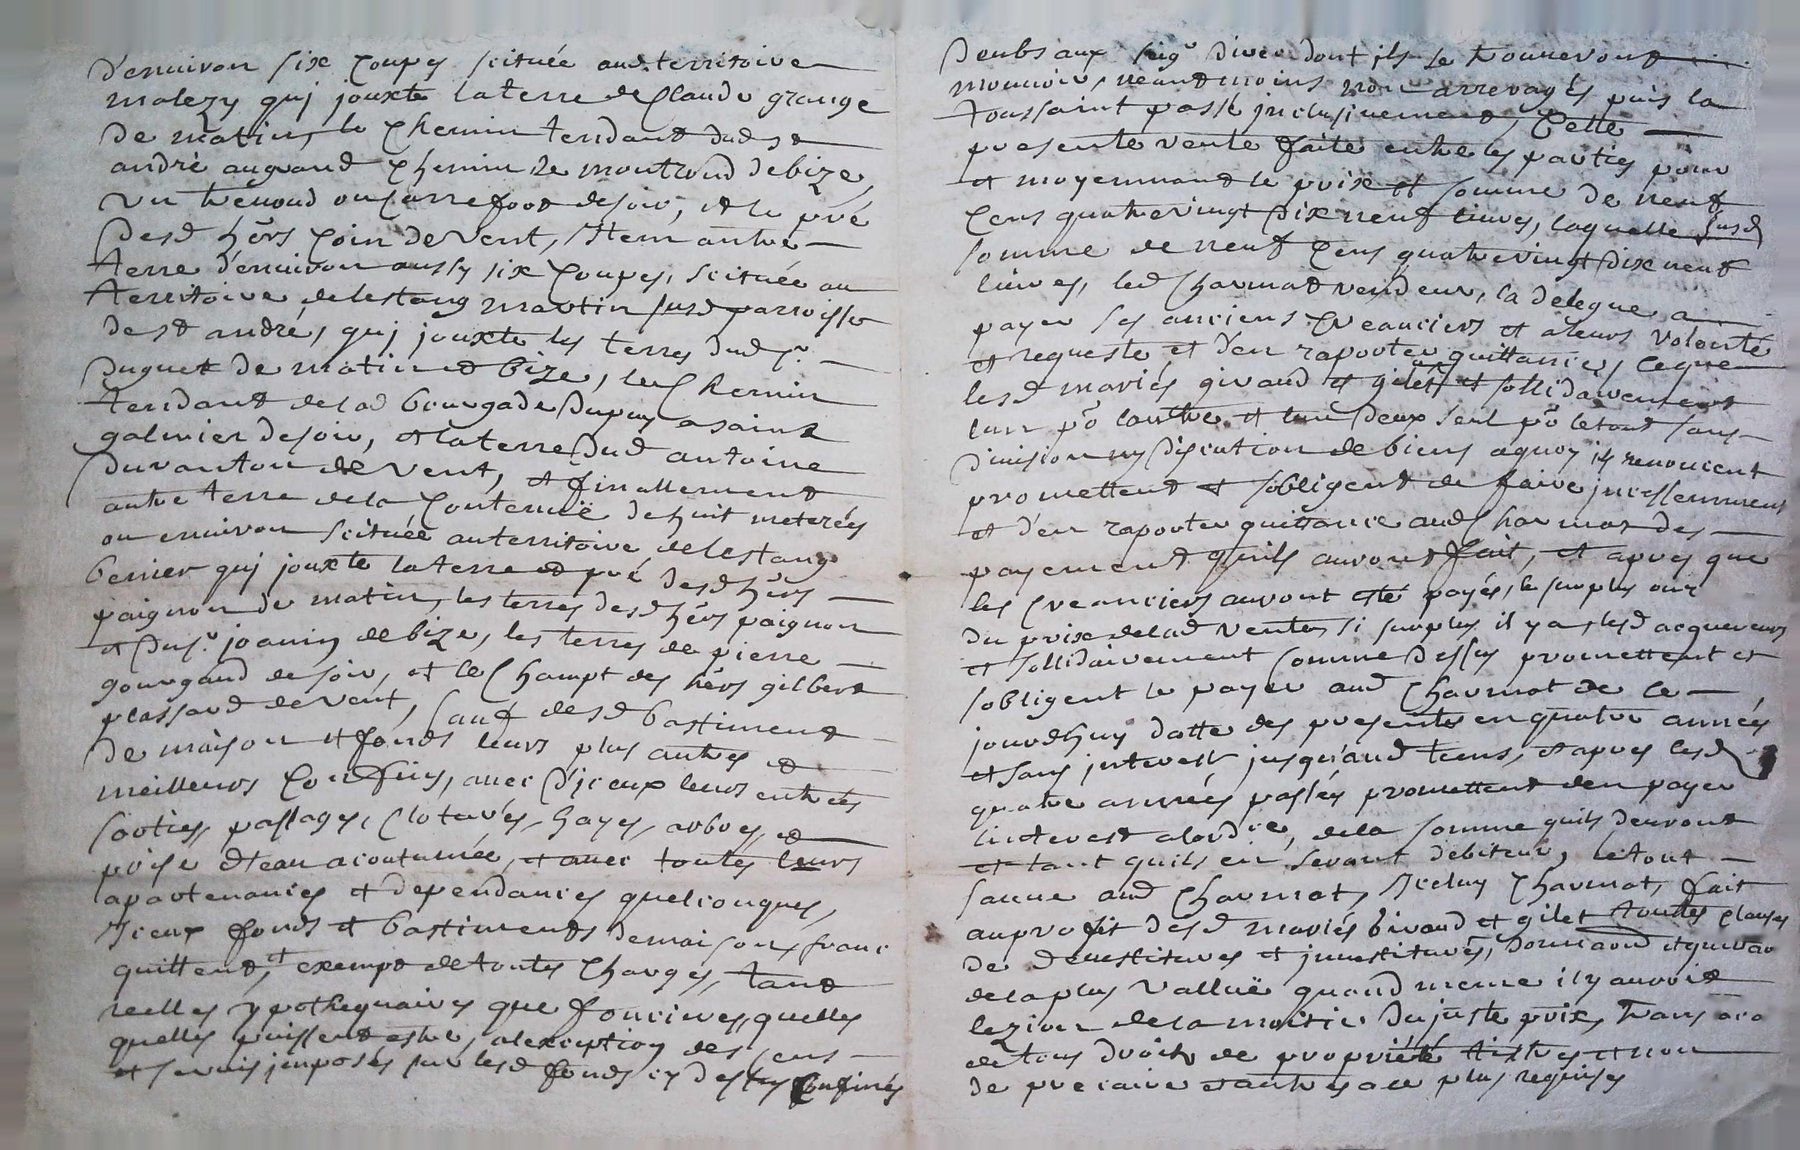 d'enuiron six coupes scituée aud territoire
malezy quj jouxte la terre de Claude grange
de matin, le Chemin tendant dud st
andré au grand Chemin de montrond de bize,
vn trenoud ou Carrefoot de soir, et le pré
desd hers Coin de Vent, Item autre
terre d'enuiron aussy six Coupes, scituée au
territoire de lestang martin susd parroisse
de st andré, quj jouxte les terres dud sr
duguet de matin et bize, le Chemin
tendant de lad bourgade Dupuy a saint
galmier de soir, et la terre dud antoine
Duranton de Vent, et finallement
autre terre de la Contenüe de huit meterées
ou enuiron scituée au territoire de lestang
berier quj jouxte la terre et pré desd hers
paignon de matin, les terres desd hers paignon
et du sr joanin de bize, les terres de pierre
gourgaud de soir, et le Champt des hers gilbert
plassard de vent, sauf desd bastiment
de maison et fonds leurs plus autres et
meilleurs Confins, auec d'iceux leurs entrées
sorties, passages, Cloturés, hayes, arbres, et
prise d'eau acoutumée, et auec toutes leurs
apartenances et dependances quelconques,
Iceux fonds et bastiments de maisons franc
quittend, et exempt de toutes Charges, tant
reelles ypothequaires que foncieres, quelles
quelles puissent estre, alexception des Cens
et seruis jmposés sur lesd fonds cy dessus Confinés
Deubs aux seigr diver dont ils se trouueront
mouuoir, neantmoins non arreragés puis la
toussaint passé jnclusiuement, Cette
presente vente faite entre les parties pour
et moyennant le prix et somme de neuf
Cens quatrevingt dix neuf liures, laquelle susd
somme de neuf Cens quatrevingt dix neuf
liures, led Charmat vendeur, la delegue a
payer ses anciens Creanciers et a leurs volonté
et requeste, et d'en raporter quittances, ce que
lesd mariés giraud et gilet et sollidairement
lun po lautre et lun deux seul po le tout sans
diuision ny discution de biens a quoy ils renoncent
promettent et sobligent de faire jncessemment
et d'en raporter quittance aud Charmat des
payement quils auront fait, et apres que
les Creanciers auront esté payés, le surplus
du prix de lad vente, si surplus il y a, lesd acquereurs
et sollidairement Comme dessus promettent et
sobligent le payer aud Charmat de ce
jourdhuy datte des presentes en quatre années
et sans jnterest jusqu'aud tems, et apres lesd
quatre années passées promettent den payer
linterest a lordre, de la somme quils deuront
et tant quils en seront debiteur, le tout
sauue aud Charmat, Iceluy Charmat, fait
au profit desd mariés giraud et gilet toutes clauses
de deuestitures et jnuestitures, donnant
de la plus valluë quand meme il y auroit
lezion de la moitié du juste prix, trans
de tous droits de proprieté tistres et non
de precaire et autres a ce plus requises